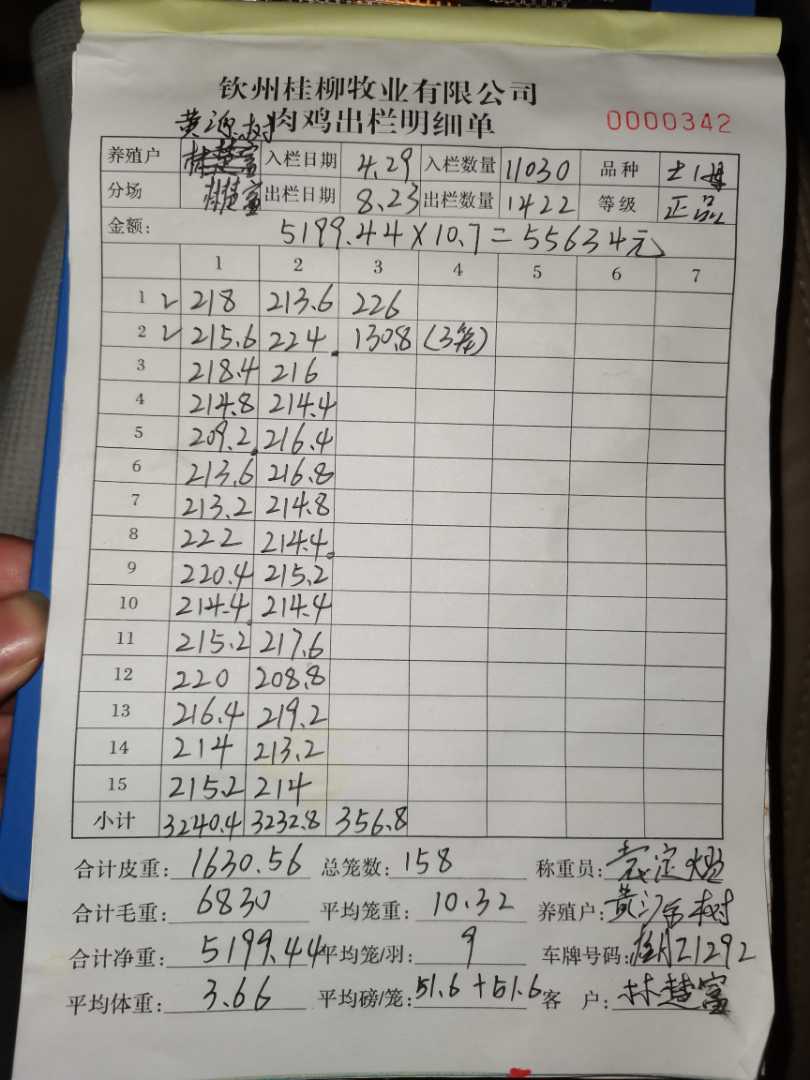 钦州桂柳牧业有限公司
肉鸡出栏明细单
黄源树
0000342
养殖户 入栏日期 4.29 入栏数量 11030 品种 土1母
分场 林慧富 出栏日期 8.23 出栏数量 1422 等级 正品
金额: 5199.44×10.7=55634元
1 2 3 4 5 6 7
1 218 213.6 226
2 215.6 224 130.8 (3笼)
3 218.4 216
4 214.8 214.4
5 209.2 216.4
6 213.6 216.8
7 213.2 214.8
8 222 214.4
9 220.4 215.2
10 214.4 214.4
11 215.2 217.6
12 220 208.8
13 216.4 219.2
14 214 213.2
15 215.2 214
小计 3240.4 3232.8 356.8
合计皮重: 1630.56 总笼数: 158 称重员:
合计毛重: 6830 平均笼重: 10.32 养殖户: 黄源树
合计净重: 5199.44 平均笼/羽: 9 车牌号码: 桂A21292
平均体重: 3.66 平均磅/笼: 51.6+51.6 客户: 林慧富